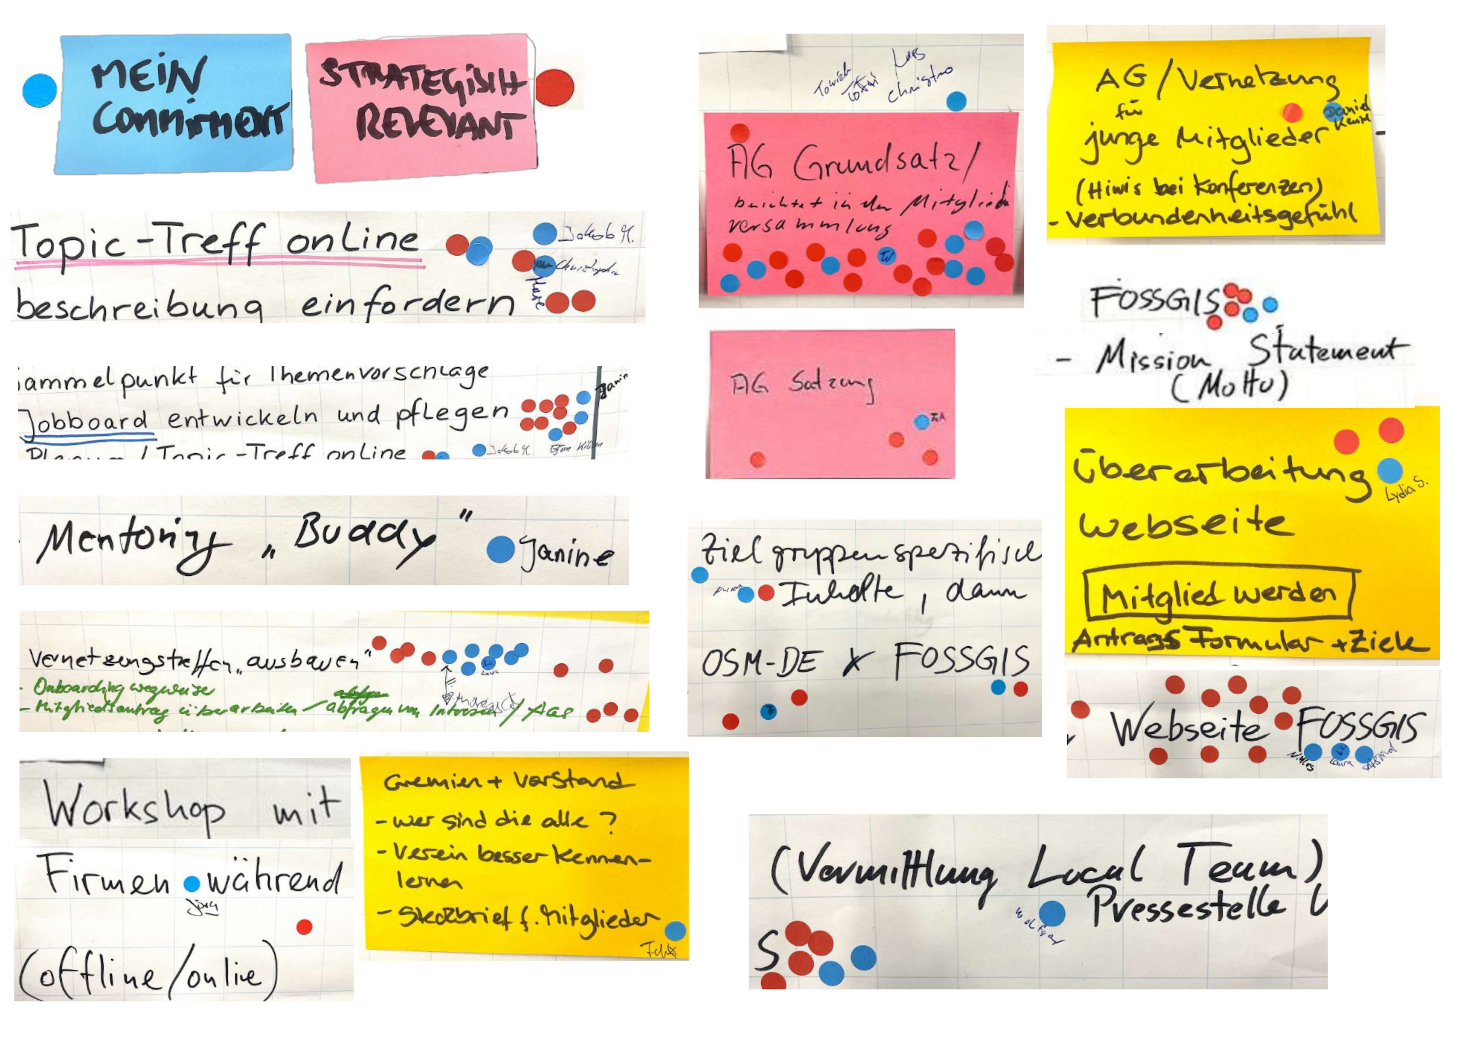 MEIN
COMMITMENT
STRATEGISCH
RELEVANT
Topic-Treff online
Jakob M.
beschreibung einfordern
ammelpunkt für Themenvorschläge
Janin
Jobboard entwickeln und pflegen
/ Topic-Treff online
Jakob M.
Mentoring "Buddy"
Janine
Vernetzungstreffen "ausbauen"
Laura
- Onboarding wegweise
- Mitgliedsantrag überarbeiten / abfragen von Interessen / AGs
Workshop mit
Firmen während
Jörg
(offline/onlie)
Gremien + Vorstand
- wer sind die alle?
- Verein besser kennen-
lernen
- Steckbrief f. Mitglieder
Felix
Lars
AG Grundsatz/
berichtet in der Mitglieds
versammlung
AG Satzung
Zielgruppenspezifisch
Inhalte, dann
OSM-DE x FOSSGIS
AG/Vernetzung
für
Daniel
junge Mitglieder
(Hiwis bei Konferenzen)
- Verbundenheitsgefühl
FOSSGIS
- Mission Statement
(Motto)
Überarbeitung
Lydia S.
Webseite
Mitglied werden
Antrags Formular + Ziele
Webseite FOSSGIS
Niklas
Laura
Astrid
(Vermittlung Local Team)
Pressestelle
S